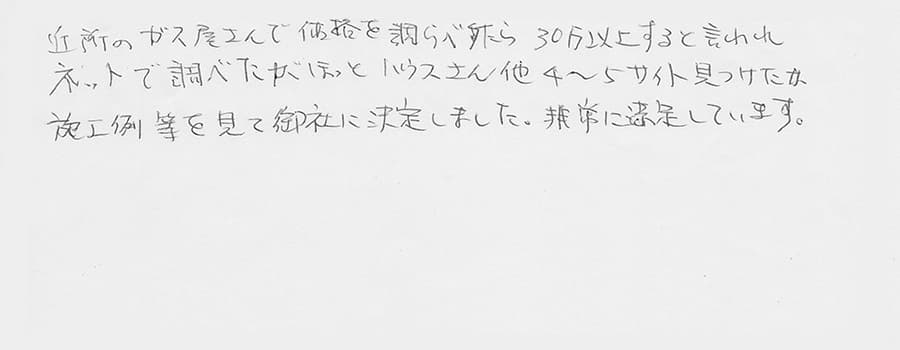 近所のガス屋さんで価格を調らべたら 30万以上すると言われ
ネットで調べたがほっとハウスさん他4〜5サイト見つけたが
施工例等を見て御社に決定しました。非常に満足しています。